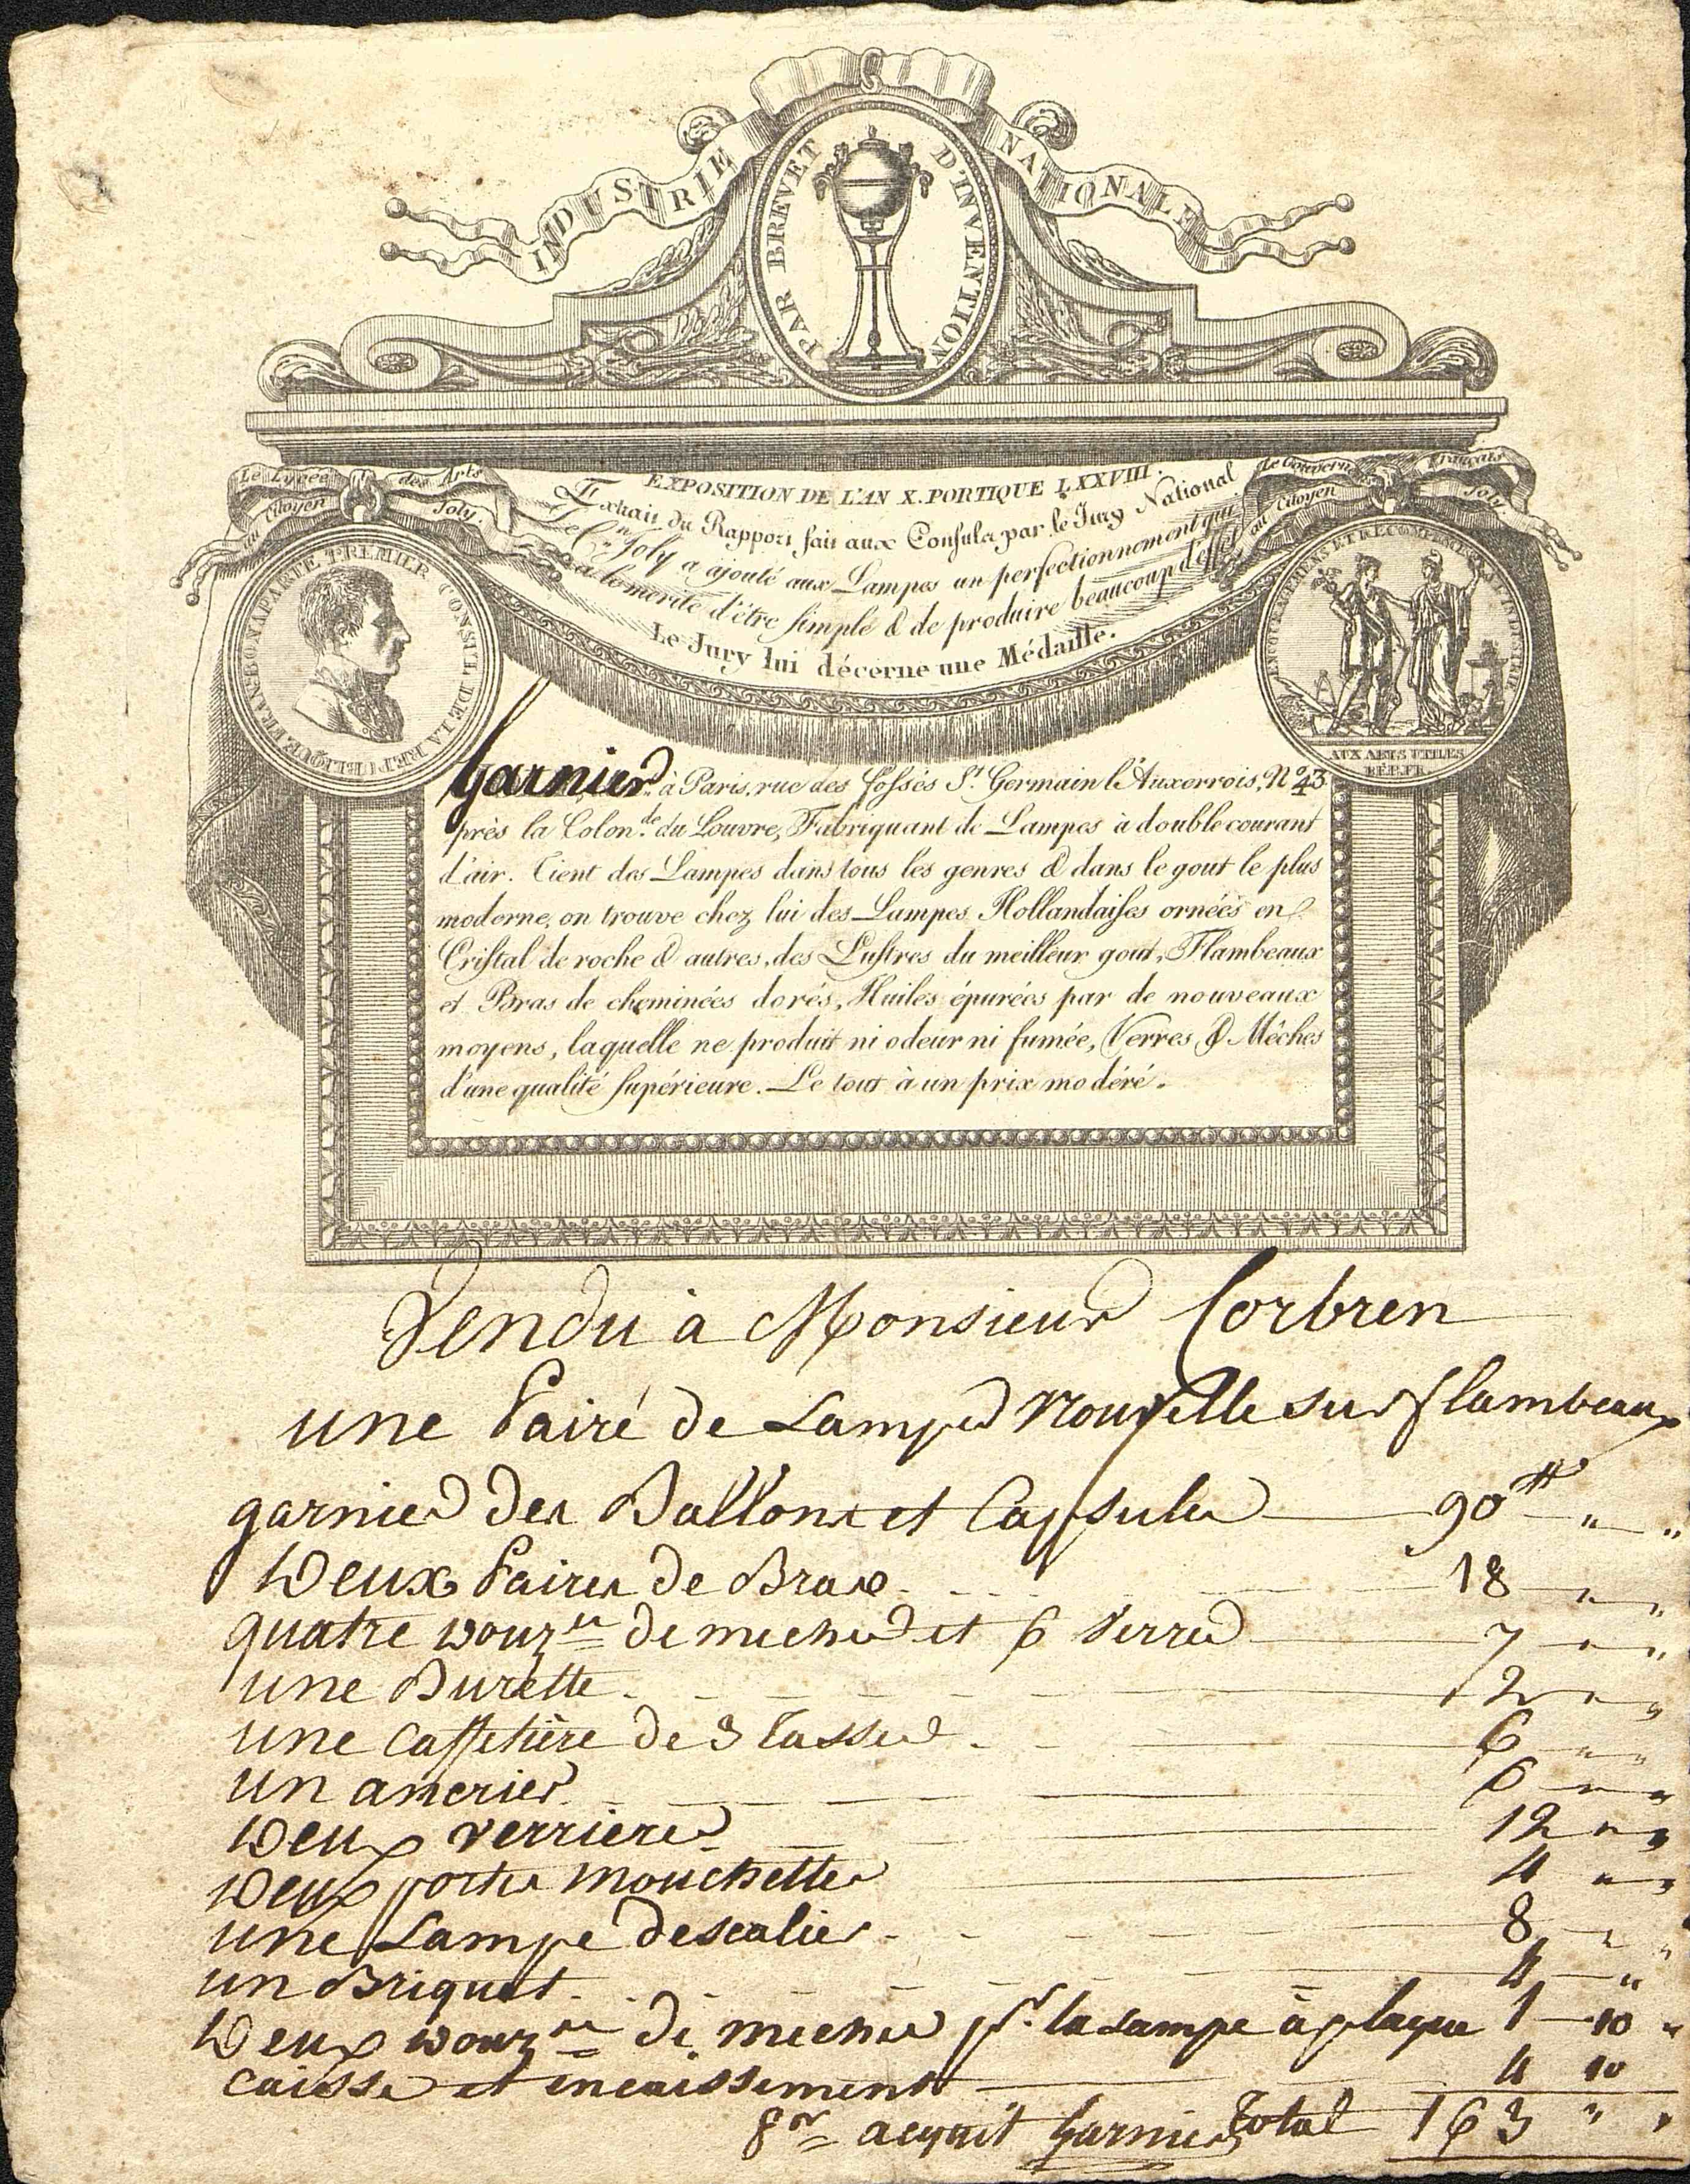 INDUSTRIE NATIONALE
PAR BREVET D'INVENTION
Le Lycée des Arts
au Citoyen Joly.
Le Gouvern.t Français
au Citoyen Joly
EXPOSITION DE L'AN X. PORTIQUE LXXVIII.
Extrait du Rapport fait aux Consuls par le Jury National
Le C.en Joly a ajouté aux Lampes un perfectionnement qui
a le mérite d'être simple & de produire beaucoup d'effet
Le Jury lui décerne une Médaille.
BONAPARTE PREMIER CONSUL DE LA REPUBLIQUE FRAN
ENCOURAGEMENS ET RECOMPENSES A L'INDUSTRIE
AUX ARTS UTILES
REP. FR.
Garnier à Paris, rue des fossés S.t Germain l'Auxerrois, N.o 43
près la Colon.de du Louvre, Fabriquant de Lampes à double courant
d'air. Tient des Lampes dans tous les genres & dans le gout le plus
moderne, on trouve chez lui des Lampes Hollandaises ornées en
Cristal de roche & autres, des Lustres du meilleur gout, Flambeaux
et Bras de cheminées dorés, Huiles épurées par de nouveaux
moyens, laquelle ne produit ni odeur ni fumée, Verres & Mêches
d'une qualité supérieure. Le tout à un prix modéré.
Vendu à Monsieur Corbren
une Pairé de Lampes Nouvelle sur flambeaux
garnies des Ballons et Capsules 90 ₶ " "
Deux Paires de Bras 18 " "
quatre douz.nes de meches et 6 Verres 7 " "
une Burette 2 " "
une Caffetière de 3 tasses 6 " "
un ancrier 6 " "
Deux verrieres 12 " "
Deux portes mouchettes 4 " "
une Lampe descalier 8 " "
un Briquet 4 "
Deux douz.ne de meches p.r la Lampe à plaque 1 10 "
Caisse et encaissement 4 10
p.r acquit Garnier Total 163 " "